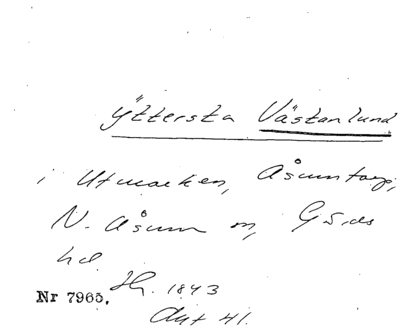 yttersta Västanlund
i Utmarken, Åsumtorp,
N. Åsum sn, Gärds
hd.
Nr 7965. Hy. 1843
Akt 41.